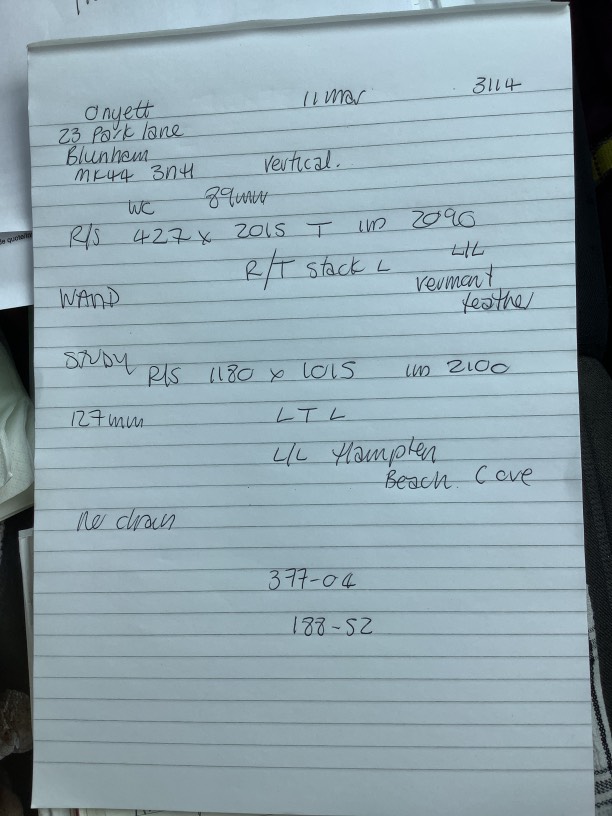 Onyett 11 Mar 3114
23 Park lane
Blunham
MK44 3NH vertical.
WC 89mm
R/S 427 x 2015 T IW 2090
R/T stack L L/L
WAND Vermont
feather
STUDY R/S 1180 x 1015 IW 2100
127mm L T L
L/L Hampton
Beach Cove
No chain
377-04
188-52